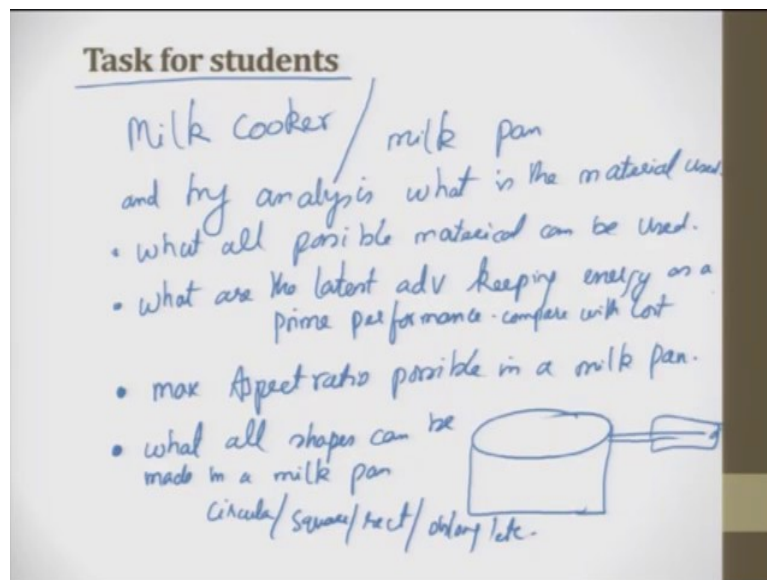 Task for students
Milk Cooker / milk pan
and try analysis what is the material used.
• what all possible material can be used.
• what are the latest adv keeping energy as a
prime performance - compare with cost
• max Aspect ratio possible in a milk pan.
• what all shapes can be
made in a milk pan
Circular/square/rect/oblong etc.